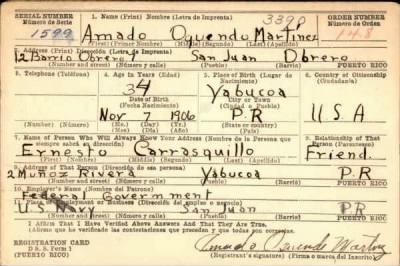 SERIAL NUMBER 1. Name (Print) Nombre (Letra de Imprenta) 3390 ORDER NUMBER
Número de Serie Número de Orden
1599 Amado Oquendo Martinez 148
(First) (Primer Nombre) (Middle) (Segundo) (Last) (Apellido)
2. Address (Print) Dirección (Letra de Imprenta)
12 Barrio Obrero San Juan Obrero
(Number and street) (Número y calle) (Pueblo) (Barrio) PUERTO RICO
3. Telephone (Teléfono) 4. Age in Years (Edad) 5. Place of Birth (Lugar de Nacimiento) 6. Country of Citizenship (Ciudadanía)
34 Yabucoa
Date of Birth City or Town
Fecha Nacimiento (Ciudad o Pueblo)
Nov 7 1906 P.R U.S.A
(Mo.) (Day) (Yr.)
7. Name of Person Who Will Always Know Your Address (Nombre de la Persona que siempre sabrá su dirección) 8. Relationship of That Person (Parentesco)
Ernesto Carrasquillo Friend.
(First) (Middle) (Segundo) (Last) (Apellido)
9. Address of That Person (Dirección de esa persona)
2 Muñoz Rivera Yabucoa P.R
(Number and street) (Número y calle) (Pueblo) (Barrio) PUERTO RICO
10. Employer's Name (Nombre del Patrono)
Federal Goverment
11. Place of Employment or Business (Dirección del empleo o negocio)
U.S. Navy San Juan P.R
(Number and street) (Número y calle) (Pueblo) (Barrio) PUERTO RICO
I Affirm That I Have Verified Above Answers And That They Are True.
(Afirmo que he verificado las contestaciones que preceden y que todas son correctas.)
REGISTRATION CARD
D. S. S. Form 1
(Puerto Rico) Amado Oquendo Martinez
Registrant's signature (Firma o marca del Inscrito)